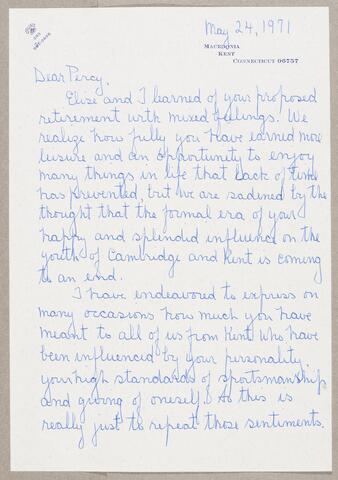 May 24, 1971
MACEDONIA
KENT
CONNECTICUT 06757
Dear Percy,
Elise and I learned of your proposed
retirement with mixed feelings. We
realize how fully you have earned more
leisure and an opportunity to enjoy
many things in life that lack of time
has prevented, but we are saddened by the
thought that the formal era of your
happy and splendid influence on the
youth of Cambridge and Kent is coming
to an end.
I have endeavored to express on
many occasions how much you have
meant to all of us from Kent who have
been influenced by your personality,
your high standards of sportsmanship
and giving of oneself. So this is
really just to repeat those sentiments.